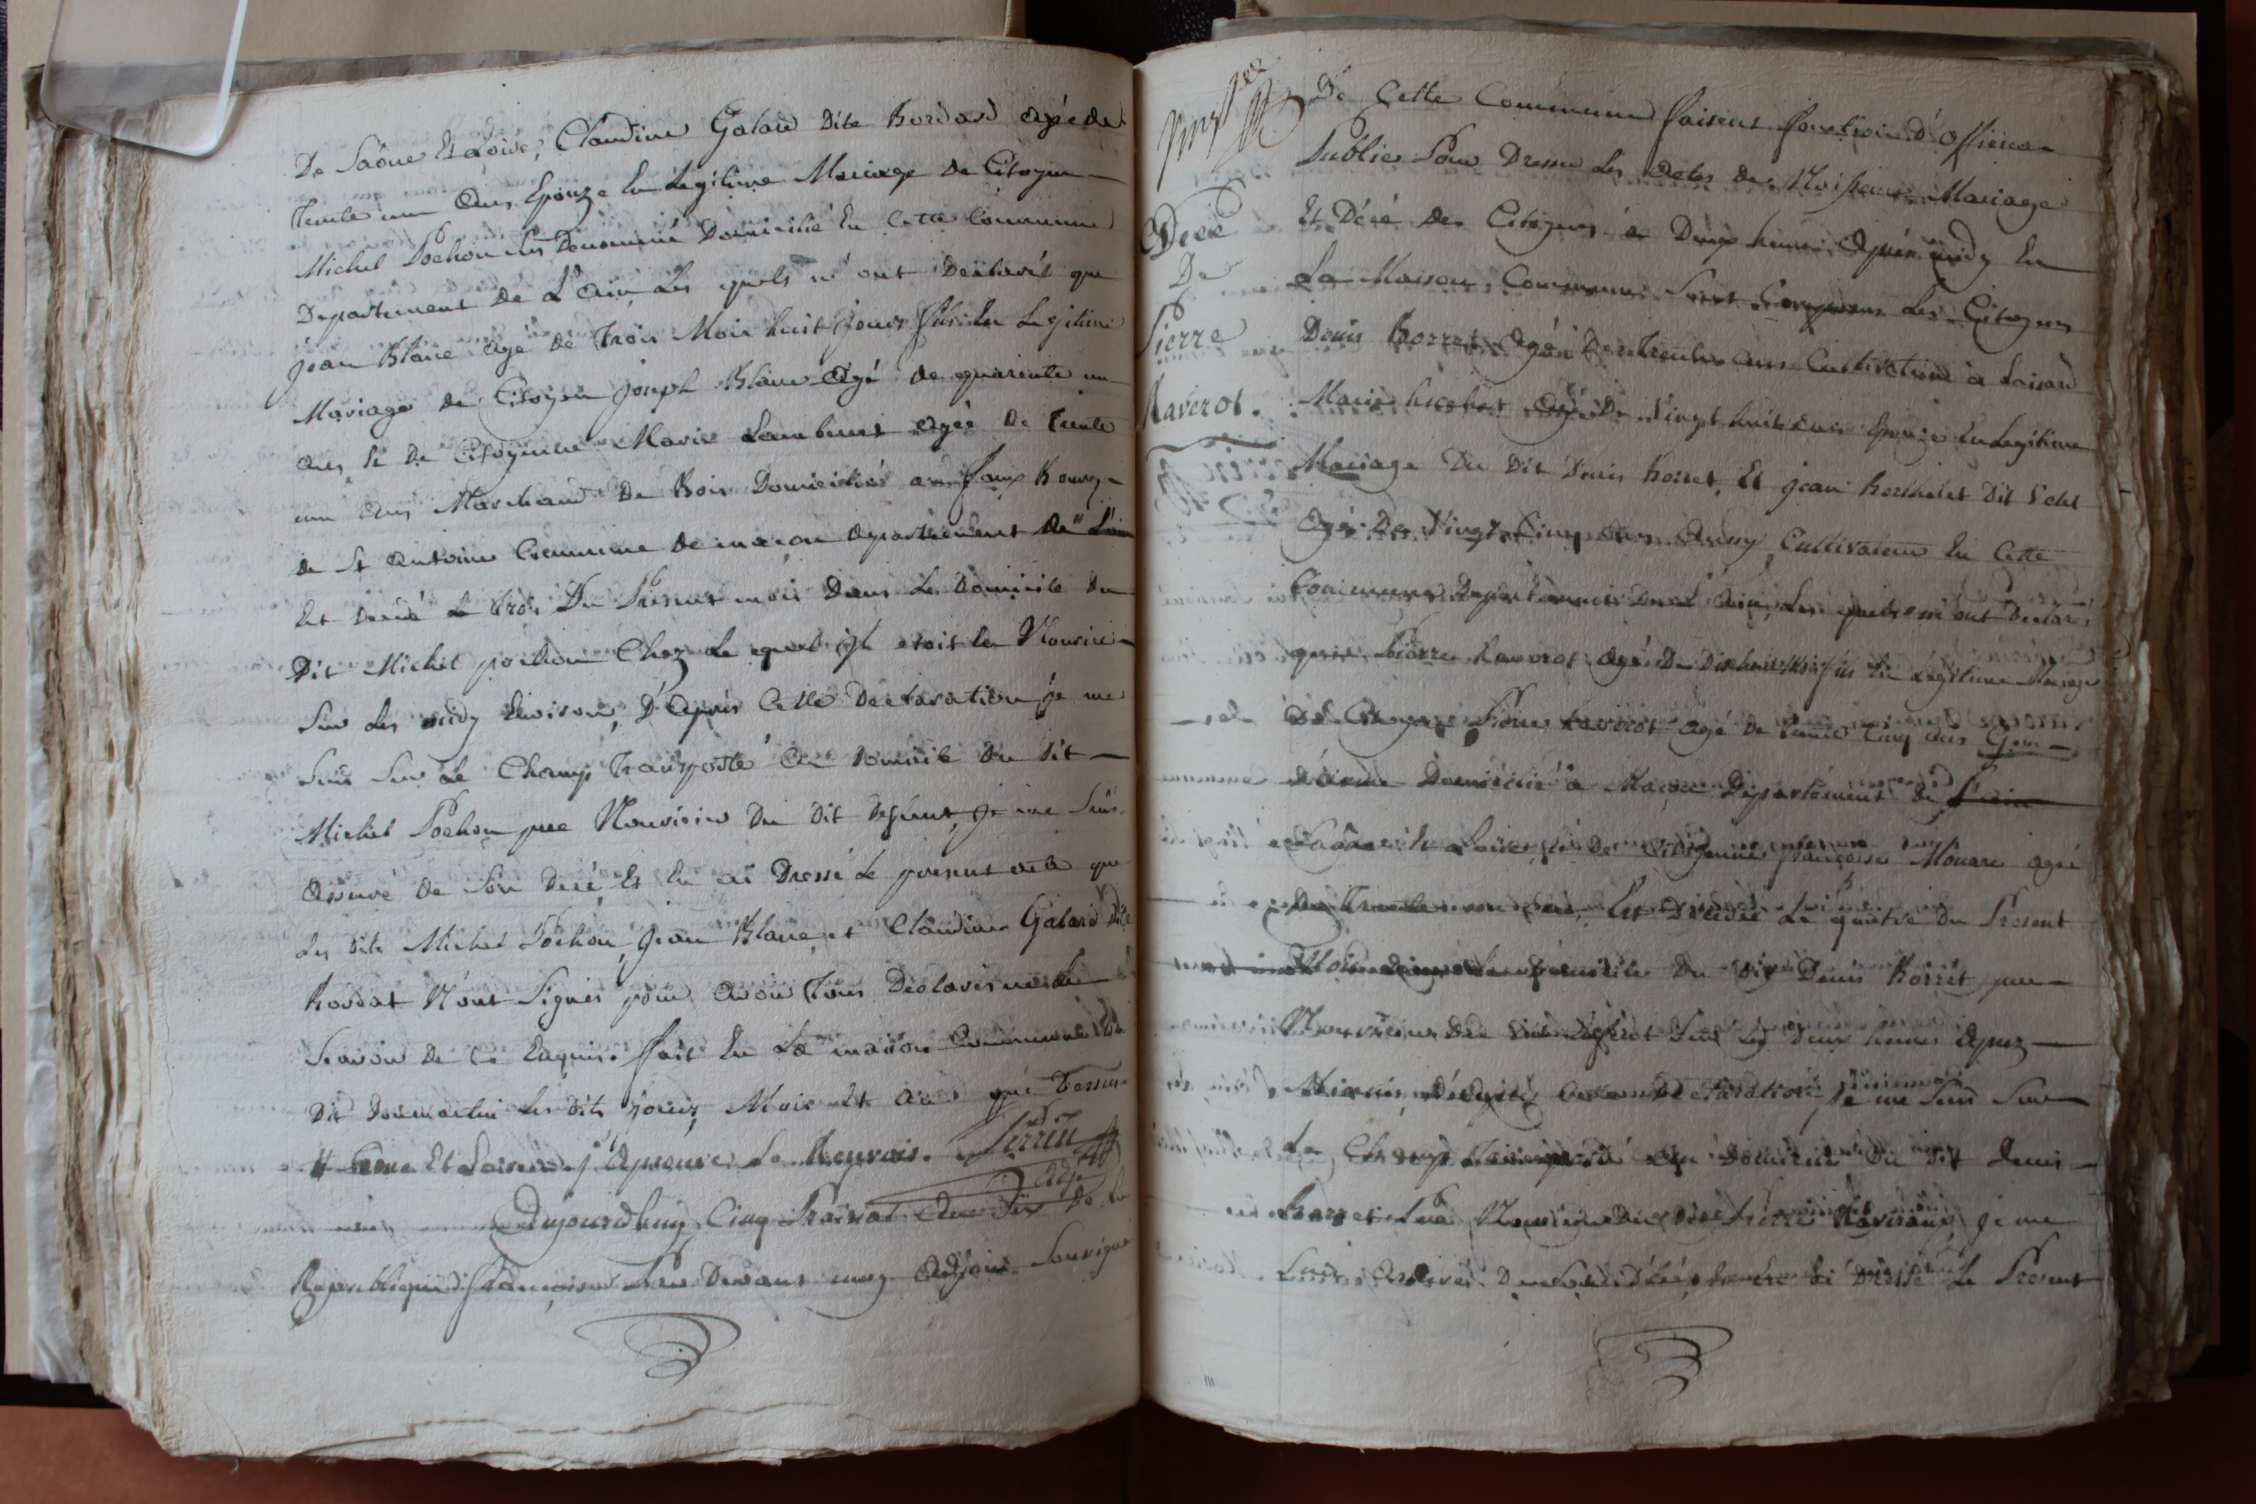 De Saône Et Loire, Claudine Galand Dite Bordard agée de
Trente un Ans Epouze En Legitime Mariage de Citoyen
Michel Pochon Sus Denommé Domicilié En Cette Commune
Departement de L'Ain Les quels m'ont Déclarés que
jean Blanc agé de Trois Mois huit jours fils En Legitime
Mariage de Citoyen joseph Blanc Agé de quarente un
ans Et De Citoyenne Marie agée De Trente
un Ans Marchand De Bois Domiciliés au faux Bourg
de St Antoine Commune de macon departement de L'ain
Est Decedé Le trois Du Present mois Dans Le Domicile Du
Dit Michel pochon Chez Le quel il etoit En Nourice
Sur Les midy Environ, D'Après Cette Declaration je me
Suis Sur Le Champ Transporté au Domicile du dit
Michel Pochon pere Nouricier Du Dit Defunt, je me Suis
Assuré de Son Decé, Et En ai Dressé Le present acte que
Les Dits Michel Pochon, jean Blanc et Claudine Galand Dite
Bordat N'ont Signés pour avoir Tous Déclarés ne Le
Scavoir De Ce Enquis. fait En La maison Commune
Dit Dommartin Les Dits jours, Mois Et An que Dessus
Saone Et Loire j'Aprouve Le Renvois. Perrin
adj.
Aujourdhuy Cinq Prairial An Dix De la
Republique francaise Par Devant moy Adjoint Sousigné
De Cette Commune faisent fonction d'Officier
Public Pour Dresser Les Actes de Naissance Mariage
Et Décé des Citoyens à Deux heures Après midy En
La Maison Commune Sont Comparus Les Citoyens
Denis Borret Agé De Trente ans Cultivateur à Loisard
Marie Agée De Vingt huit ans Epouze En Legitime
Mariage Du Dit Denis Borret, Et jean Berthelet Dit
Agé De Vingt Cinq Ans Aussy Cultivateur En Cette
Commune Departement de L'Ain, Les quels m'ont Declarés
que Pierre Raverot agé De Dixhuit Mois fils En Légitime Mariage
de Citoyen Pierre Raverot agé de Trente Cinq ans Gen
darme Domicilié à Macon Departement de L'ain
Saône Et Loire, Et De Citoyenne françoise Monare agée
De Trente un Ans, Est Decedé Le quatre du Present
Mois dans Le Domicile Du Dit Denis Borret pere
Nouricier Du Dit Defunt Sur Les Deux heures Aprez
Minuit, D'Après Cette Declaration je me Suis Sur
Le Champ Transporté Au Domicile Du Dit Denis
Borret Pere Nouricier Du Dit Pierre Raverot, je me
Suis Assuré De Son Décé, Et En ai Dressé Le Present
Décé
De
Pierre
Raverot.